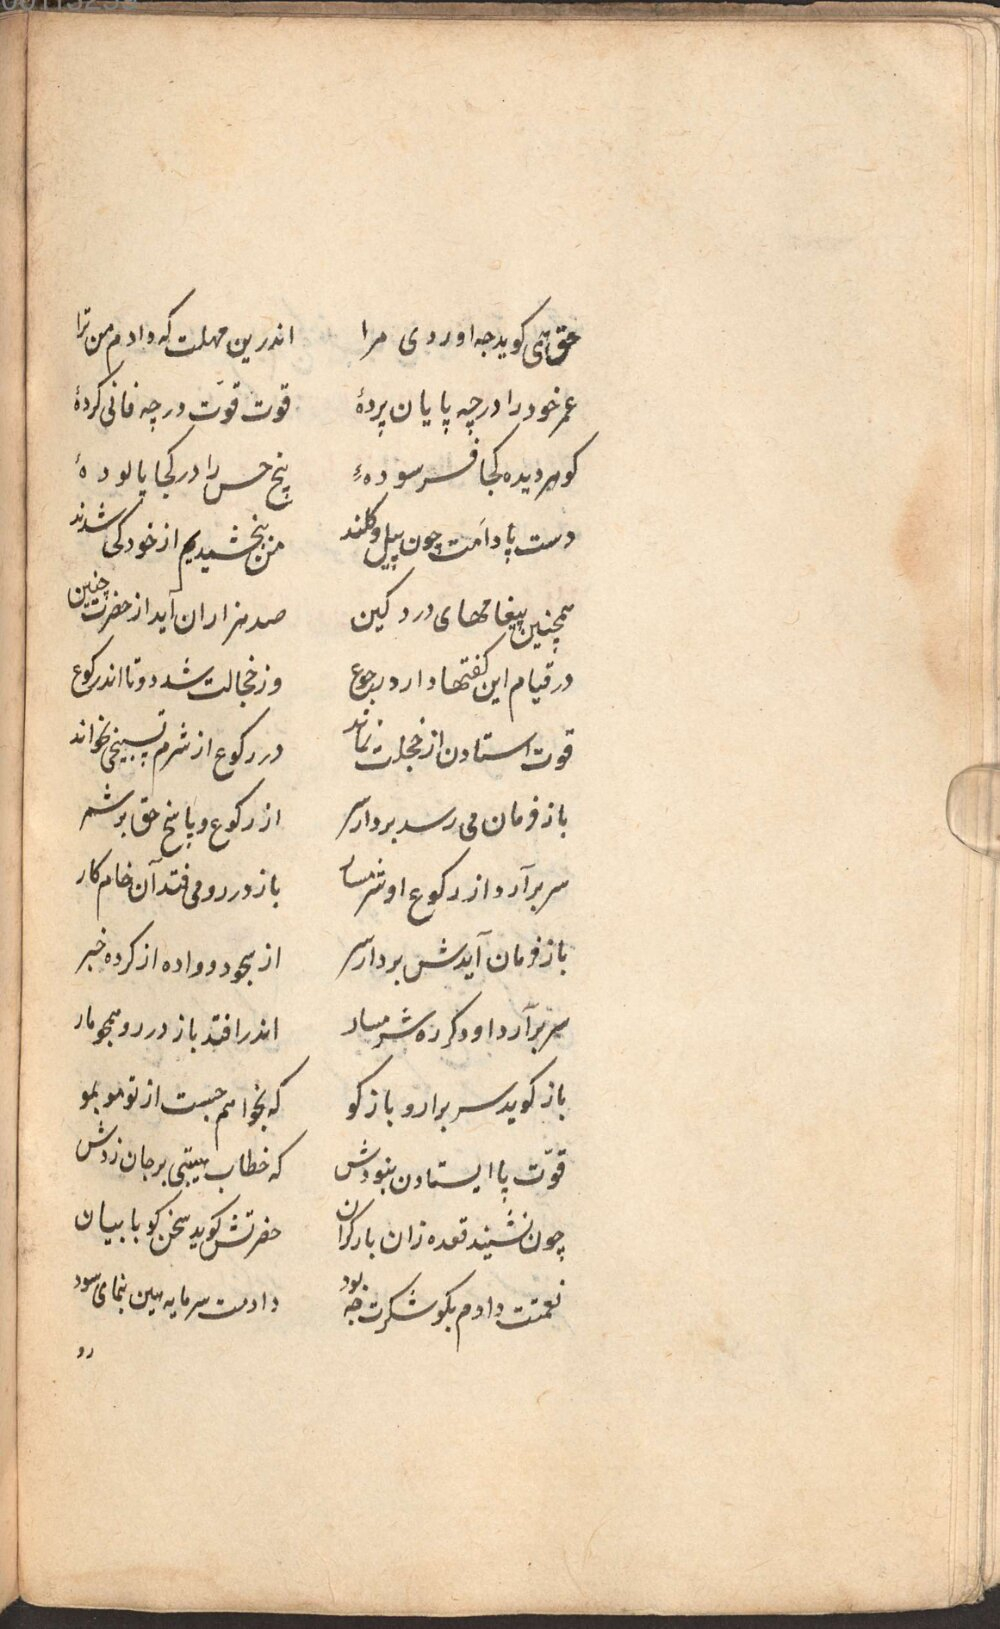 حق همی کوید جه اوردی مرا اندرین مهلت که دادم من ترا
عمر خود را در چه پایان بردهٔ قوت قوّت در چه فانی کردهٔ
کوهر دیده کجا فرسودهٔ پنج حس را در کجا پالودهٔ
دست پا دامت چون بیل و کلند من ببخشیدم از خود کی شدند
همچنین پیغامهای درد کین صد هزاران آید از حضرت چنین
در قیام این کفتها دارد رجوع وز خجالت شد دوتا اندر رکوع
قوت استادن از خجلت نماند در رکوع از شرم تسبیحی بخواند
باز فرمان می رسد بردار سر از رکوع و پاسخ حق بر شمر
سر برآرد از رکوع او شرمسار باز در رو می فتد آن خام کار
باز فرمان آیدش بردار سر از سجود و واده از کرده خبر
سر برآرد او دکر ره شرمسار اندر افتد باز در رو همچو مار
باز کوید سر برار و باز کو که بخواهم جست از تو مو بمو
قوّت پا ایستادن نبودش که خطاب هیبتی بر جان زدش
چون نشیند قعده زان بار کران حضرتش کوید سخن کو با بیان
نعمتت دادم بکو شکرت چه بود دادمت سرمایه هین بنمای سود
رو